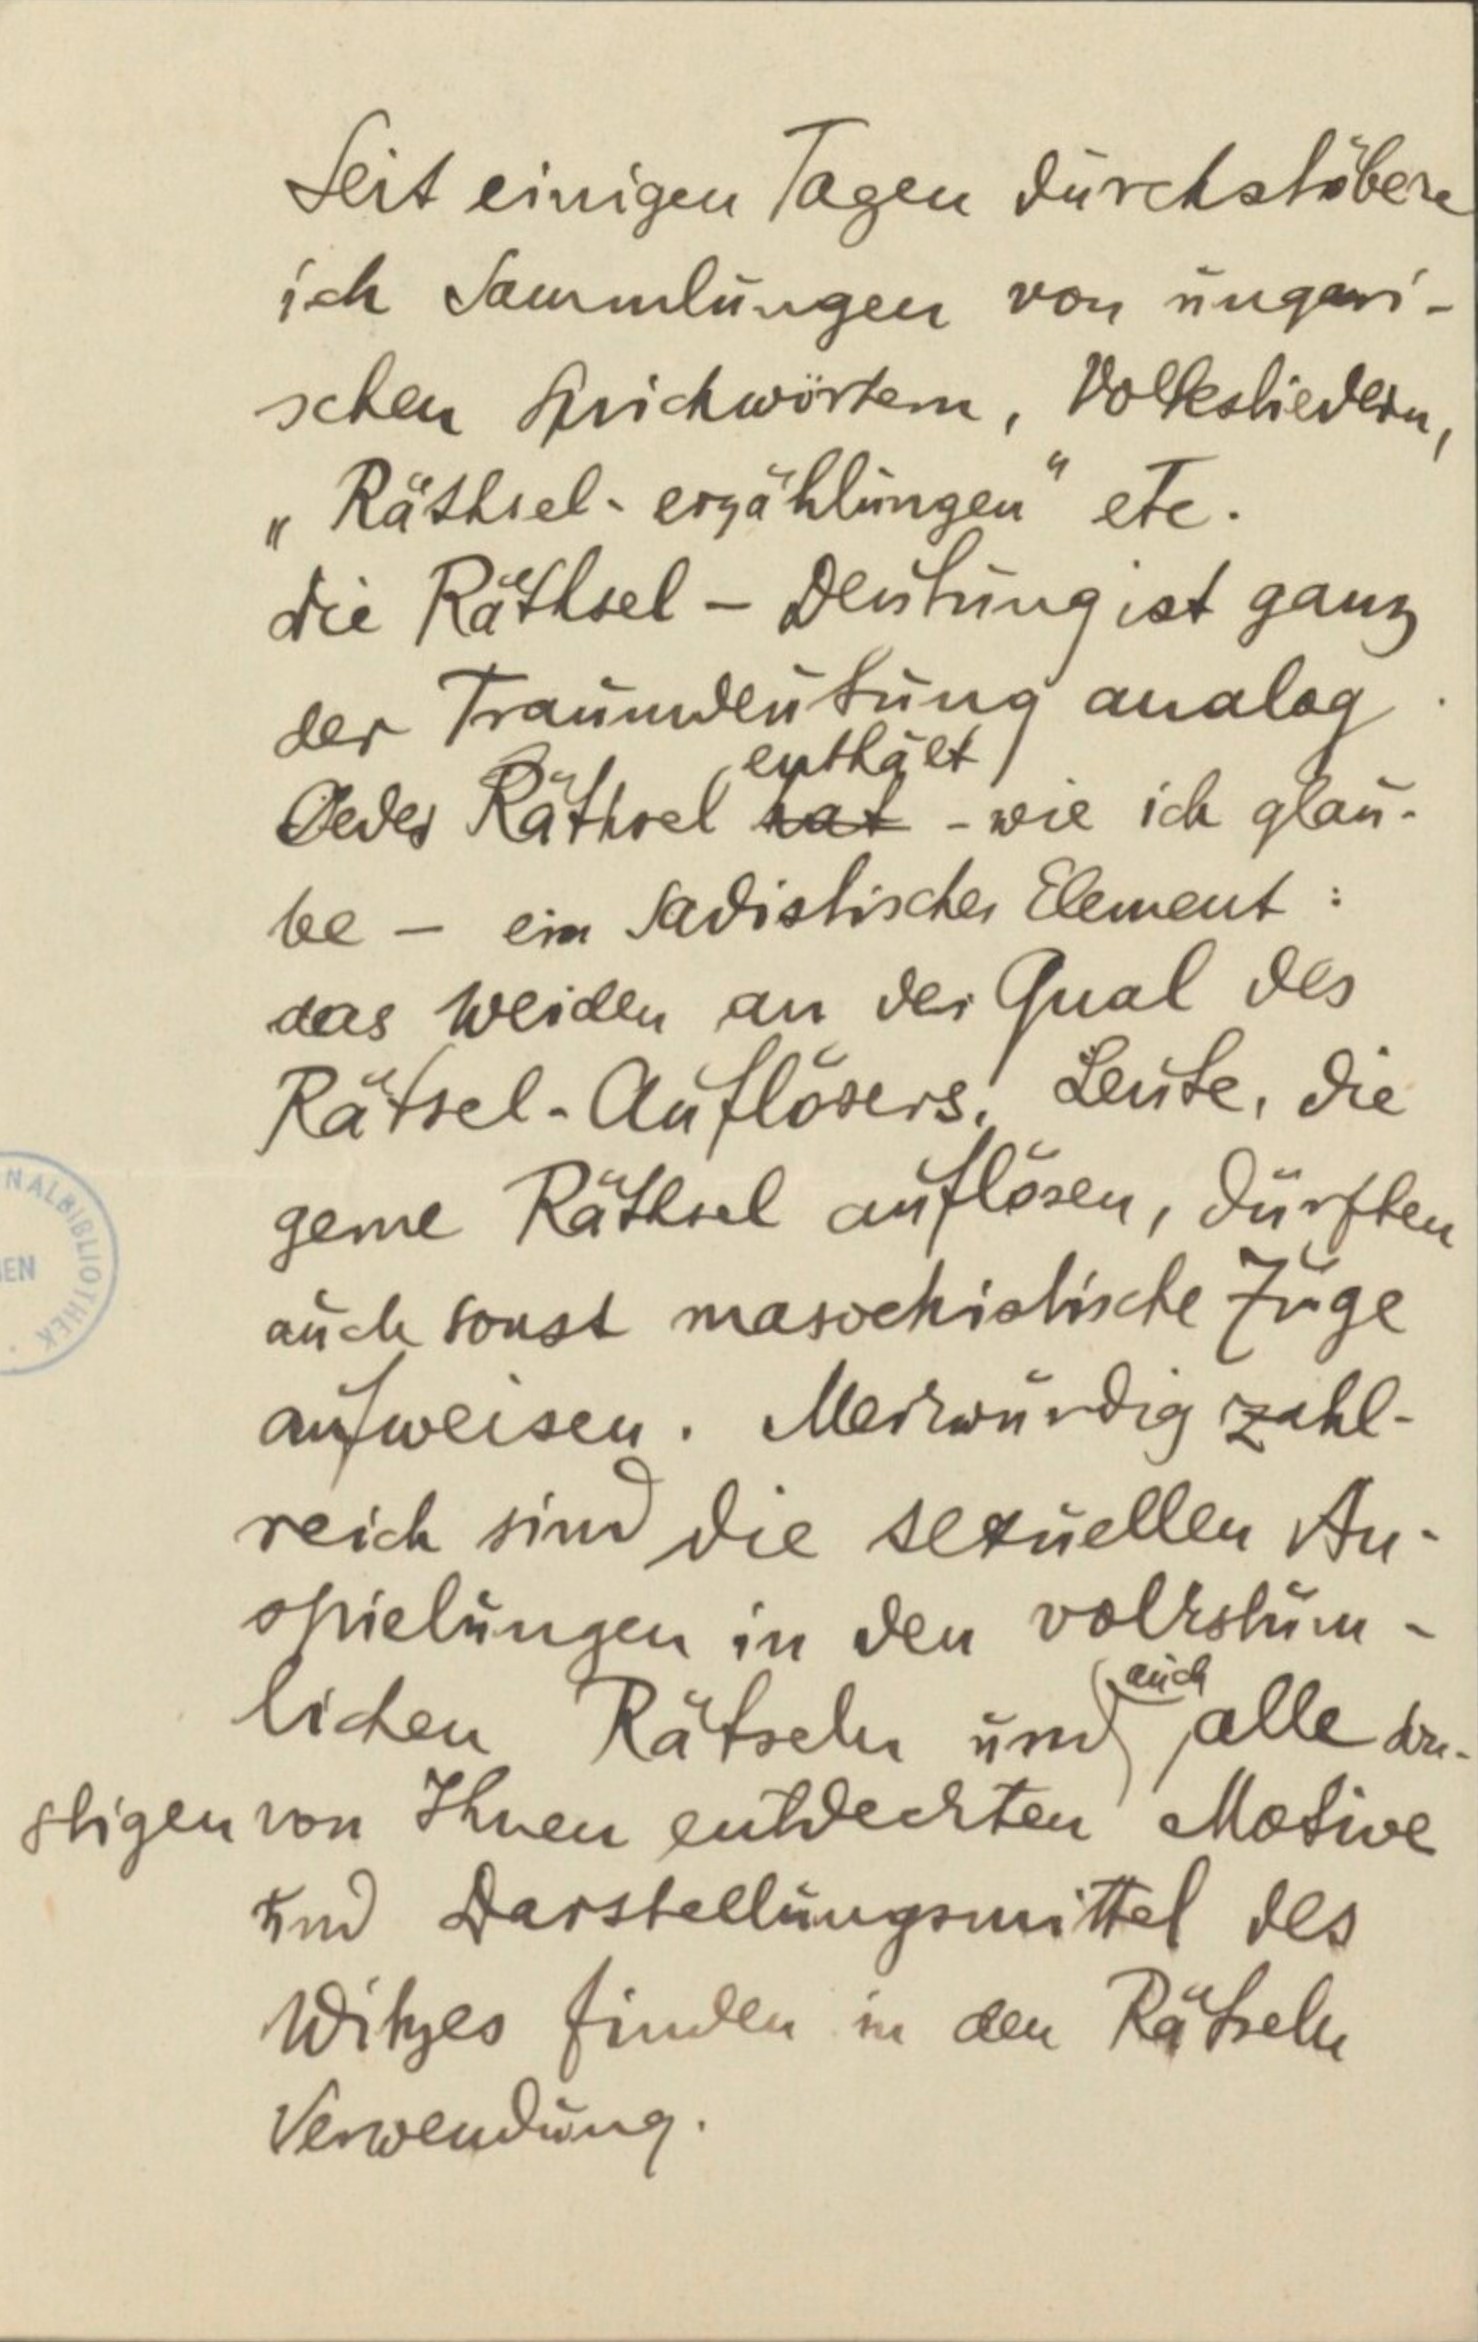 Seit einigen Tagen durchstöbere
ich Sammlungen von ungari-
schen Sprichwörtern, Volksliedern,
„Räthsel-erzählungen" etc.
die Räthsel – Deutung ist ganz
der Traumdeutung analog.
enthält
Jedes Räthsel hat - wie ich glau-
be – ein sadistisches Element:
das Weiden an der Qual des
Rätsel-Auflösers. Leute, die
gerne Räthsel auflösen, dürften
auch sonst masochistische Züge
aufweisen. Merkwürdig zahl-
reich sind die sexuellen An-
spielungen in den volkstüm-
auch
lichen Rätseln und alle
stigen von Ihnen entdeckten Motive
und Darstellungsmittel des
Witzes finden in den Rätseln
Verwendung.
NALBIBLIOTHEK
IEN